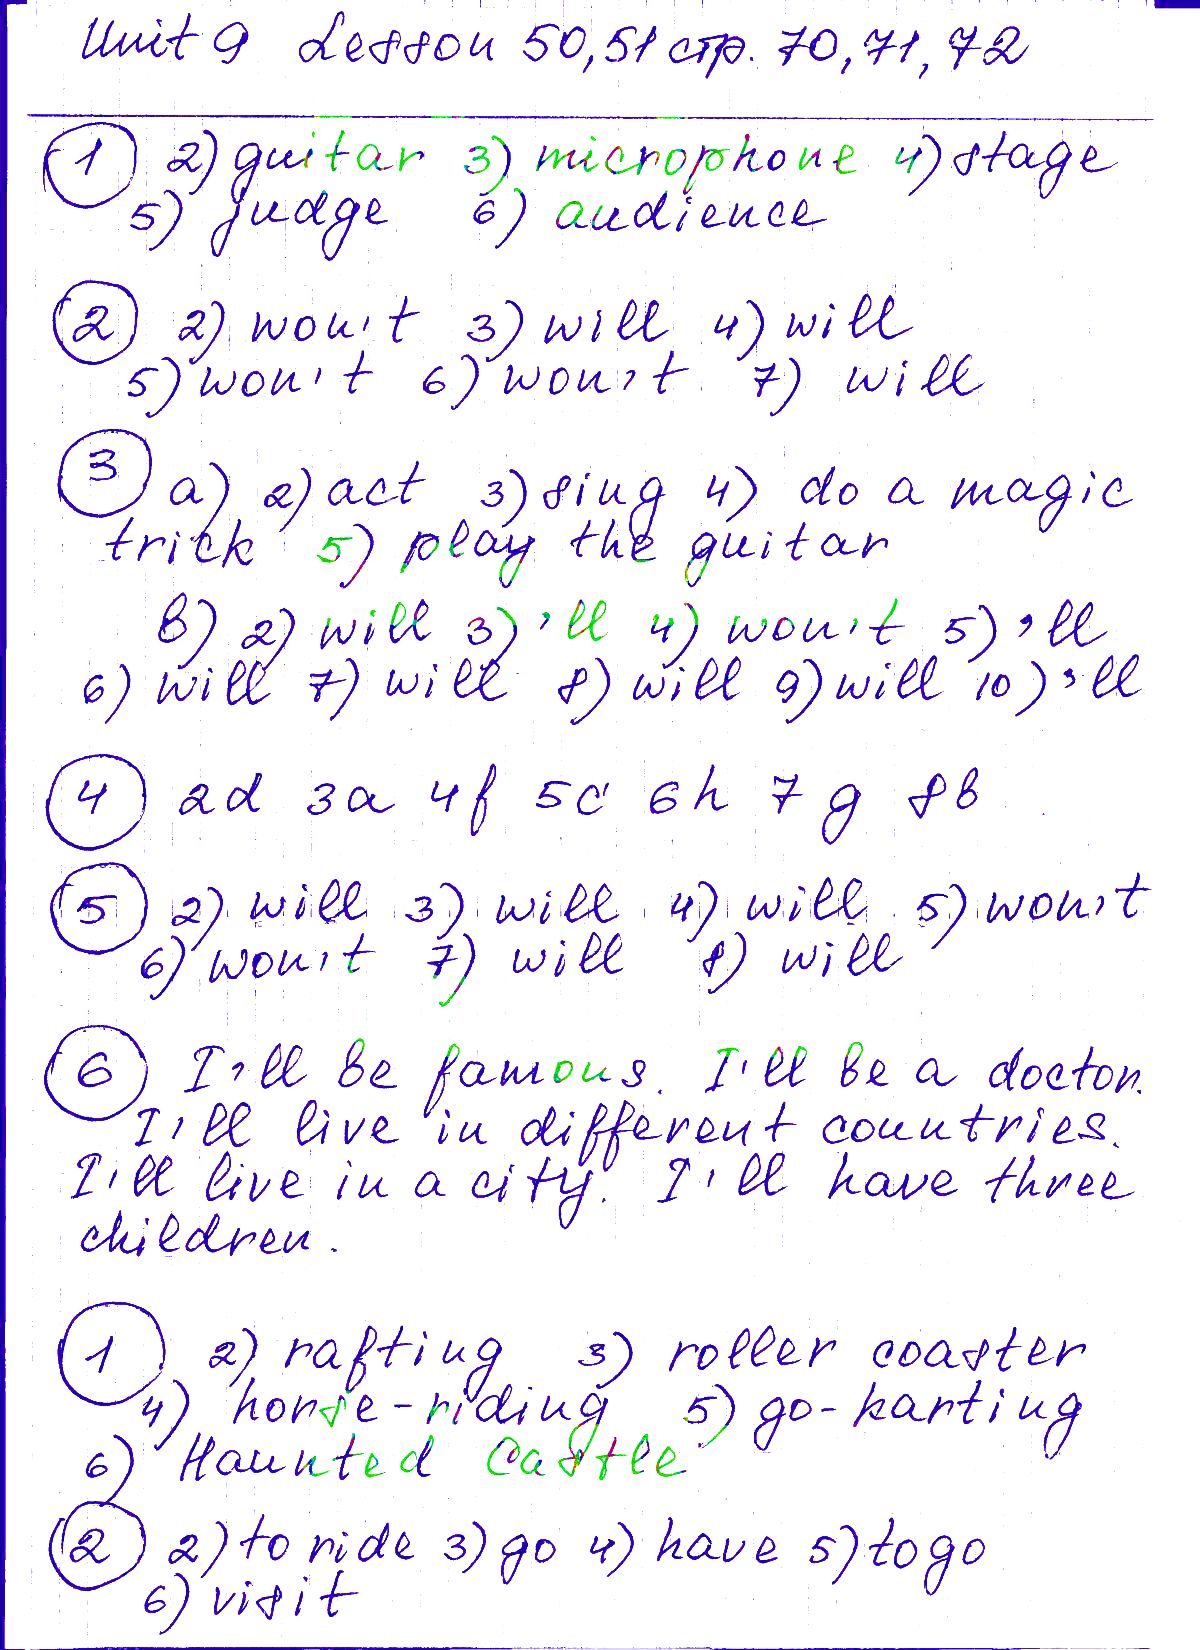 Unit 9 Lesson 50,51 стр. 70,71,72
1 2) guitar 3) microphone 4) stage
5) judge 6) audience
2 2) won't 3) will 4) will
5) won't 6) won't 7) will
3 a) 2) act 3) sing 4) do a magic
trick 5) play the guitar
в) 2) will 3) 'll 4) won't 5) 'll
6) will 7) will 8) will 9) will 10) 'll
4 2d 3a 4f 5c 6h 7g 8b
5 2) will 3) will 4) will 5) won't
6) won't 7) will 8) will
6 I'll be famous. I'll be a doctor.
I'll live in different countries.
I'll live in a city. I'll have three
children.
1 2) rafting 3) roller coaster
4) horse-riding 5) go-karting
6) Haunted Castle
2 2) to ride 3) go 4) have 5) to go
6) visit